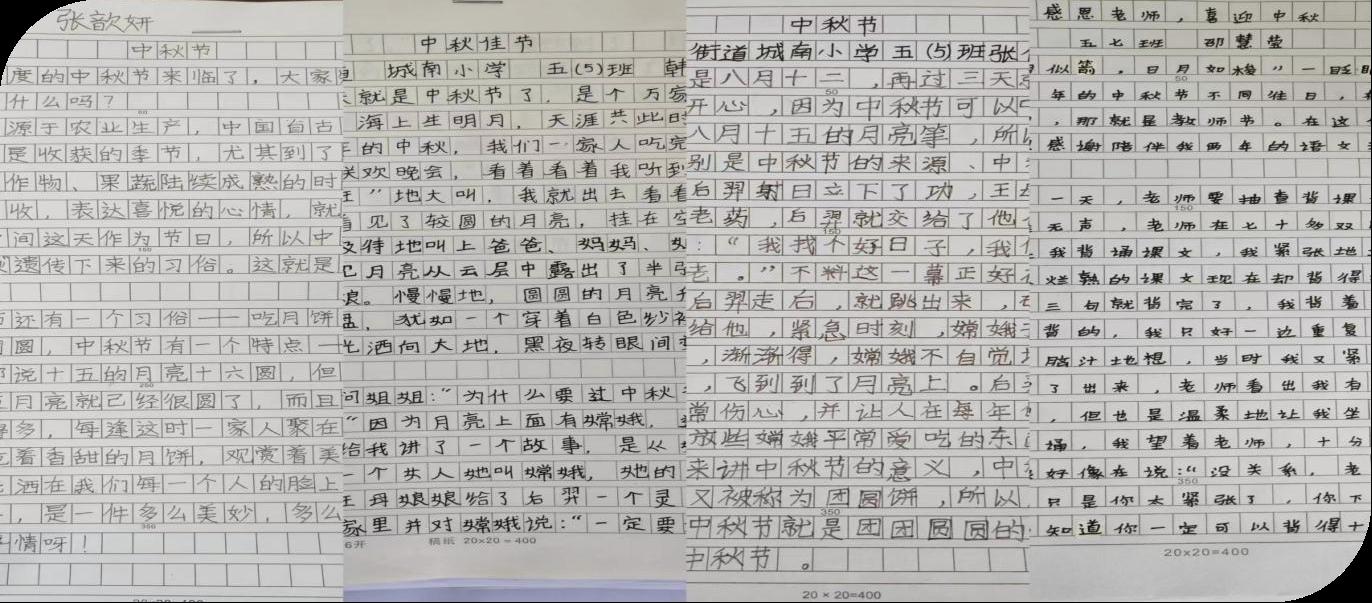 张歆妍
中秋节
度的中秋节来临了，大家
什么吗？
源于农业生产，中国自古
是收获的季节，尤其到了
作物、果蔬陆续成熟的时
收，表达喜悦的心情，就
间这天作为节日，所以中
遗传下来的习俗。这就是
还有一个习俗——吃月饼
圆，中秋节有一个特点一
说十五的月亮十六圆，但
月亮就已经很圆了，而且
得多，每逢这时一家人聚在
着香甜的月饼，观赏着美
洒在我们每一个人的脸上
，是一件多么美妙，多么
情呀！
中秋佳节
城南小学 五(5)班 韩
就是中秋节了，是个万家
海上生明月，天涯共此时
的中秋，我们一家人吃完
联欢晚会，看着看着我听到
”地大叫，我就出去看看
见了较圆的月亮，挂在空
及待地叫上爸爸、妈妈、
月亮从云层中露出了半张
。慢慢地，圆圆的月亮升
，犹如一个穿着白色纱裙
洒向大地，黑夜转眼间
问姐姐：“为什么要过中秋
“因为月亮上面有嫦娥，
给我讲了一个故事，是从
一个女人她叫嫦娥，她的
王母娘娘给了后羿一个灵
家里并对嫦娥说：“一定要
6开 稿纸 20×20＝400
中秋节
街道城南小学五(5)班张
是八月十二，再过三天
50
开心，因为中秋节可以
八月十五的月亮等，所以
别是中秋节的来源、中
后羿射日立下了功，王
老药，后羿就交给了他
150
：“我找个好日子，我
老。”不料这一幕正好
后羿走后，就跳出来，
给他，紧急时刻，嫦娥
，渐渐得，嫦娥不自觉
，飞到到了月亮上。后
常伤心，并让人在每年
放些嫦娥平常爱吃的东
来讲中秋节的意义，中
又被称为团圆饼，所以
350
中秋节就是团团圆圆的
中秋节。
20×20=400
感恩老师，喜迎中秋
五七班 邵慧莹
似箭，日月如梭”一眨眼
50
年的中秋节不同往日，
，那就是教师节。在这
感谢陪伴我两年的语文
一天，老师要抽查背课
150
无声，老师在七十多双
我背诵课文，我紧张地
烂熟的课文现在却背得
三句就背完了，我背着
背的，我只好一边重复
脑汁地想，当时我又紧
了出来，老师看出我有
，但也是温柔地让我坐
诵，我望着老师，十分
好像在说：“没关系，老
350
只是你太紧张了，你下
知道你一定可以背得十
20×20=400